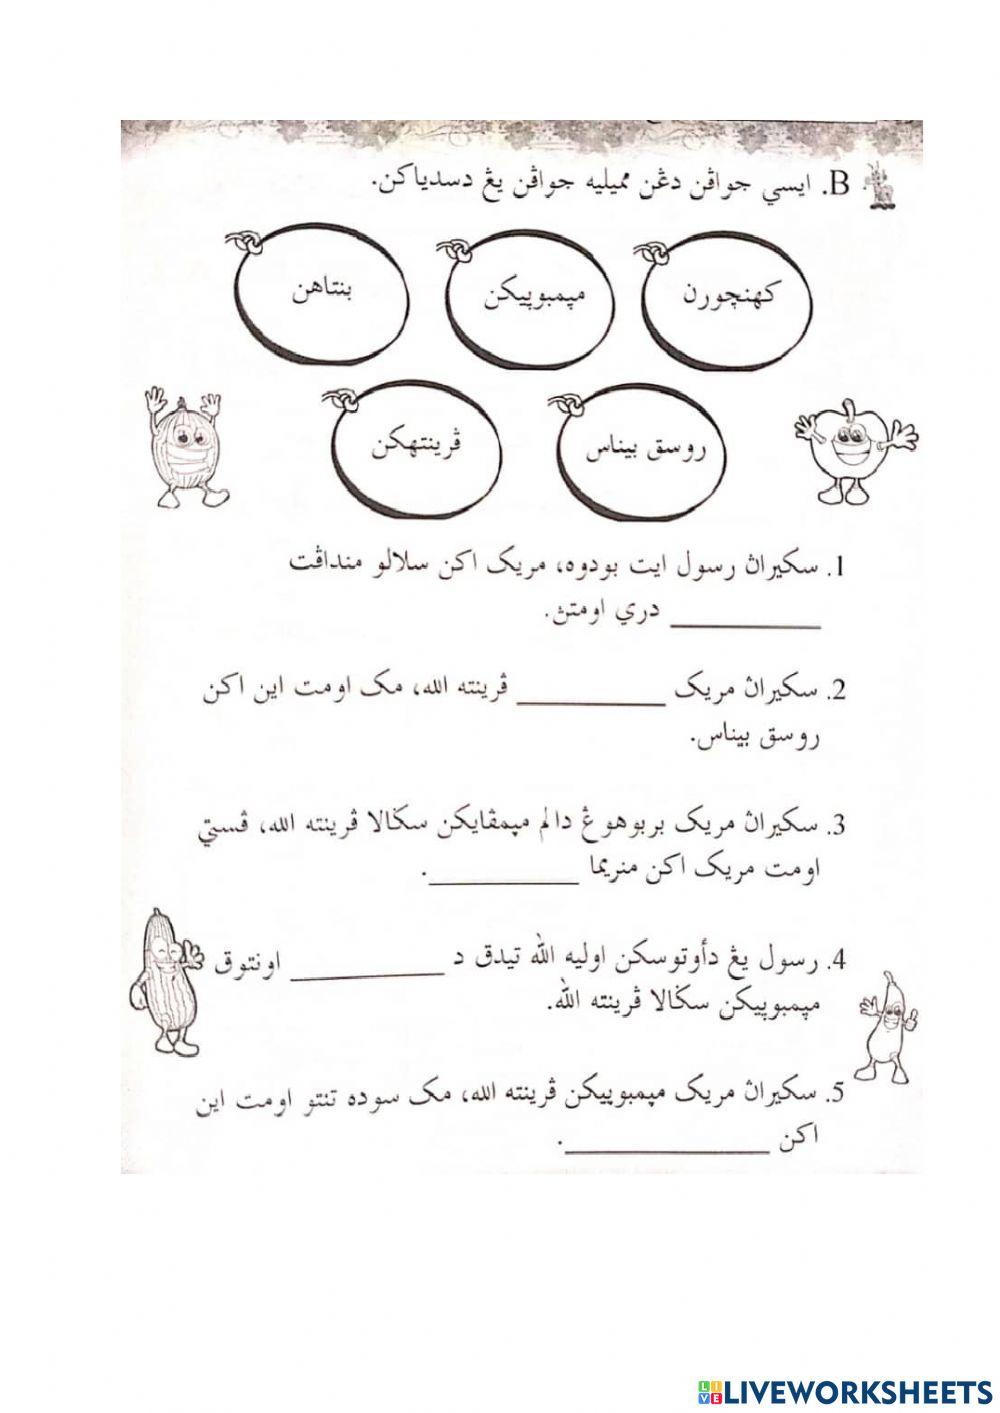 B. ايسي جواڤن دڠن مميليه جواڤن يڠ دسدياکن.
کهنچورن
مڽمبوڽيکن
بنتاهن
روسق بيناس
ڤرينتهکن
1. سکيراڽ رسول ايت بودوه، مريک اکن سلالو منداڤت
________ دري اومتڽ.
2. سکيراڽ مريک ________ ڤرينته الله، مک اومت اين اکن
روسق بيناس.
3. سکيراڽ مريک بربوهوڠ دالم مڽمڤايکن سݢالا ڤرينته الله، ڤستي
اومت مريک اکن منريما ________.
4. رسول يڠ دأوتوسکن اوليه الله تيدق د ________ اونتوق
مڽمبوڽيکن سݢالا ڤرينته الله.
5. سکيراڽ مريک مڽمبوڽيکن ڤرينته الله، مک سوده تنتو اومت اين
اکن ________.
LIVEWORKSHEETS